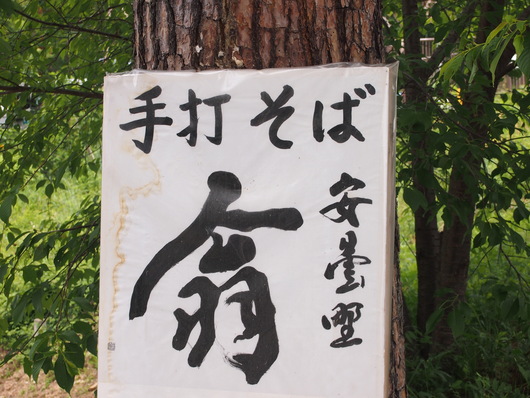 手打そば
安曇野
翁